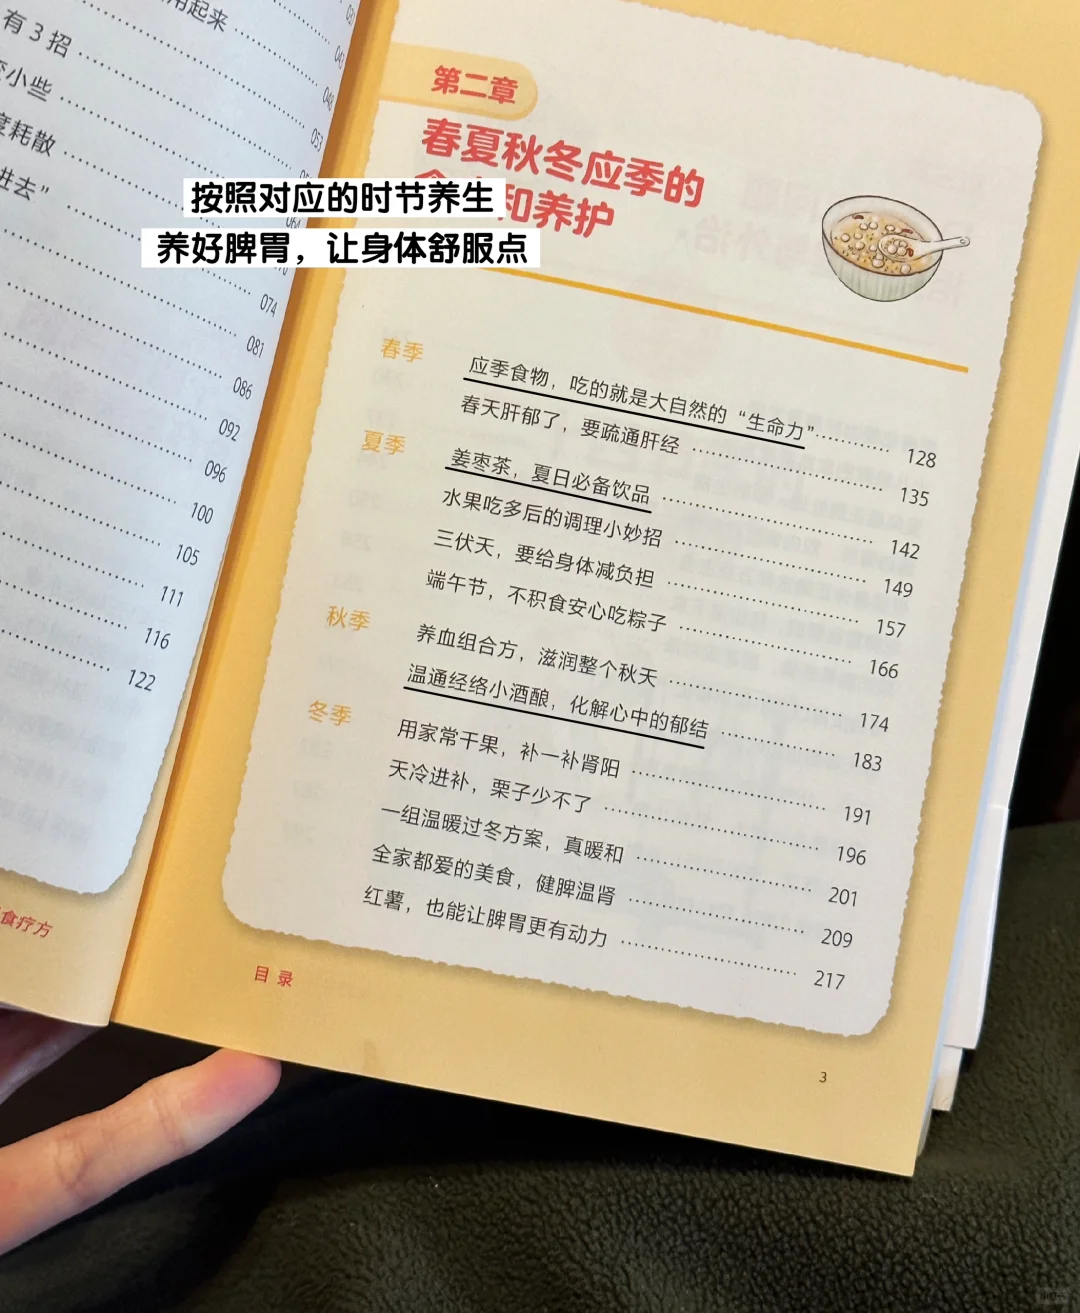 用起来
有3招
变小些
度耗散
进去”
029
041
048
053
064
070
074
081
086
092
096
100
105
111
116
122
食疗方
按照对应的时节养生
养好脾胃，让身体舒服点
第二章
春夏秋冬应季的
和养护
春季
应季食物，吃的就是大自然的“生命力” 128
春天肝郁了，要疏通肝经 135
夏季
姜枣茶，夏日必备饮品 142
水果吃多后的调理小妙招 149
三伏天，要给身体减负担 157
端午节，不积食安心吃粽子 166
秋季
养血组合方，滋润整个秋天 174
温通经络小酒酿，化解心中的郁结 183
冬季
用家常干果，补一补肾阳 191
天冷进补，栗子少不了 196
一组温暖过冬方案，真暖和 201
全家都爱的美食，健脾温肾 209
红薯，也能让脾胃更有动力 217
目录
3